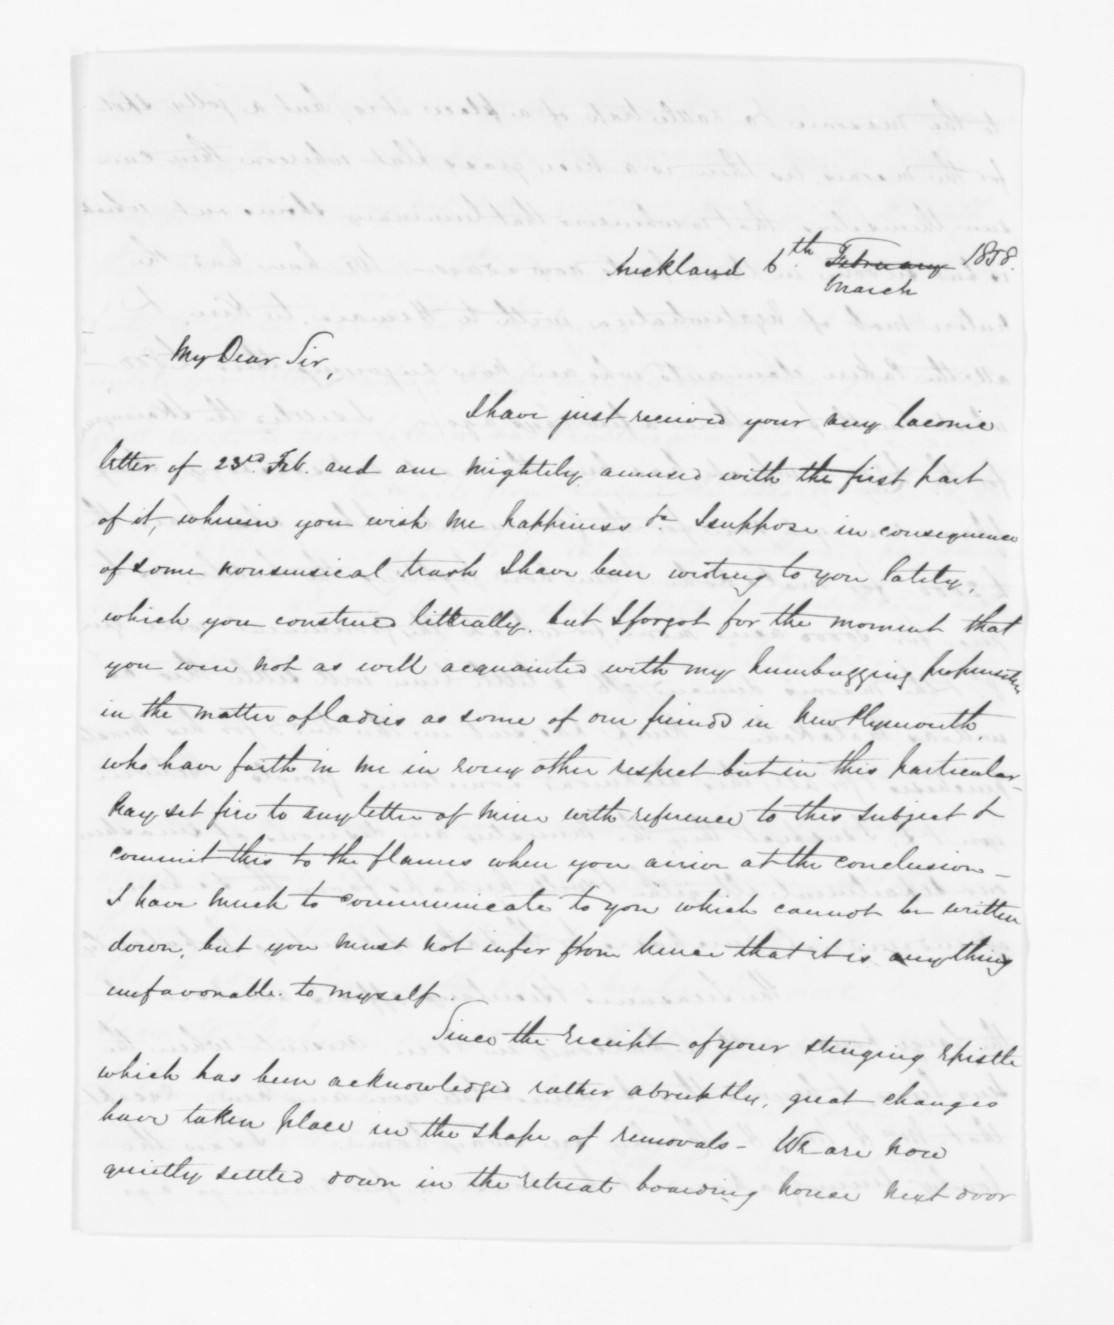 Auckland 6th. February 1858.
March
My Dear Sir,
I have just received your very laconic
letter of 23rd. Feb. and am mightily amused with the first part
of it, wherein you wish me happiness &c I suppose in consequence
of some nonsensical trash I have been writing to you lately,
which you construed litterally. but I forgot for the moment that
you were not as well acquainted with my humbugging propensities
in the matter of ladies as some of our friends in New Plymouth.
who have faith in me in every other respect but in this particular -
Pray set fire to any letter of mine with reference to this subject &
commit this to the flames when you arrive at the conclusion -
I have much to communicate to you which cannot be written
down, but you must not infer from hence that it is anything
unfavorable to myself.
Since the receipt of your stinging epistle
which has been acknowledged rather abruptly, great changes
have taken place in the shape of removals - We are now
quietly settled down in the retreat boarding house next door